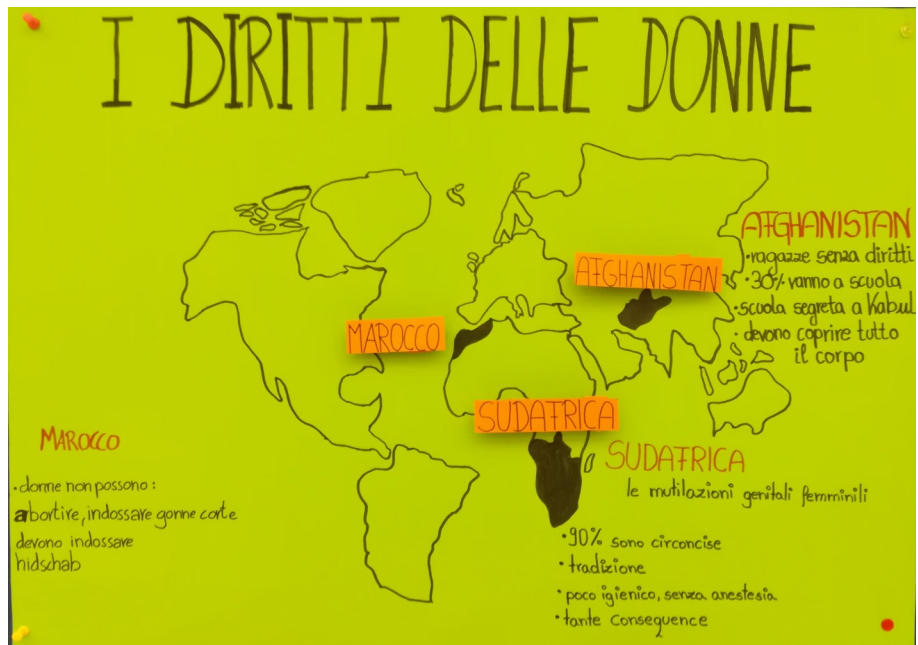 I DIRITTI DELLE DONNE
AFGHANISTAN
•ragazze senza diritti
•30% vanno a scuola
•scuola segreta a Kabul
•devono coprire tutto
il corpo
AFGHANISTAN
MAROCCO
SUDAFRICA
MAROCCO
•donne non possono:
abortire, indossare gonne corte
devono indossare
hidschab
SUDAFRICA
le mutilazioni genitali femminili
•90% sono circoncise
•tradizione
•poco igienico, senza anestesia
•tante consequence